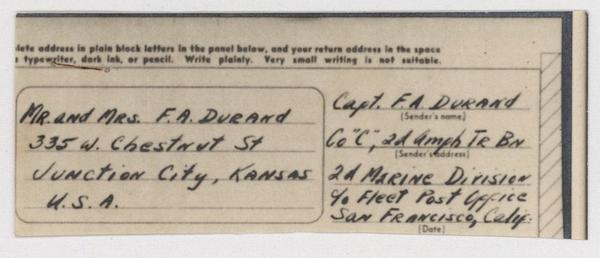 lete address in plain block letters in the panel below, and your return address in the space
typewriter, dark ink, or pencil. Write plainly. Very small writing is not suitable.
Mr. and Mrs. F. A. Durand
335 W. Chestnut St
Junction City, Kansas
U.S.A.
Capt. F A Durand
(Sender's name)
Co "C", 2d Amph Tr Bn
(Sender's address)
2d Marine Division
c/o Fleet Post Office
San Francisco, Calif.
(Date)